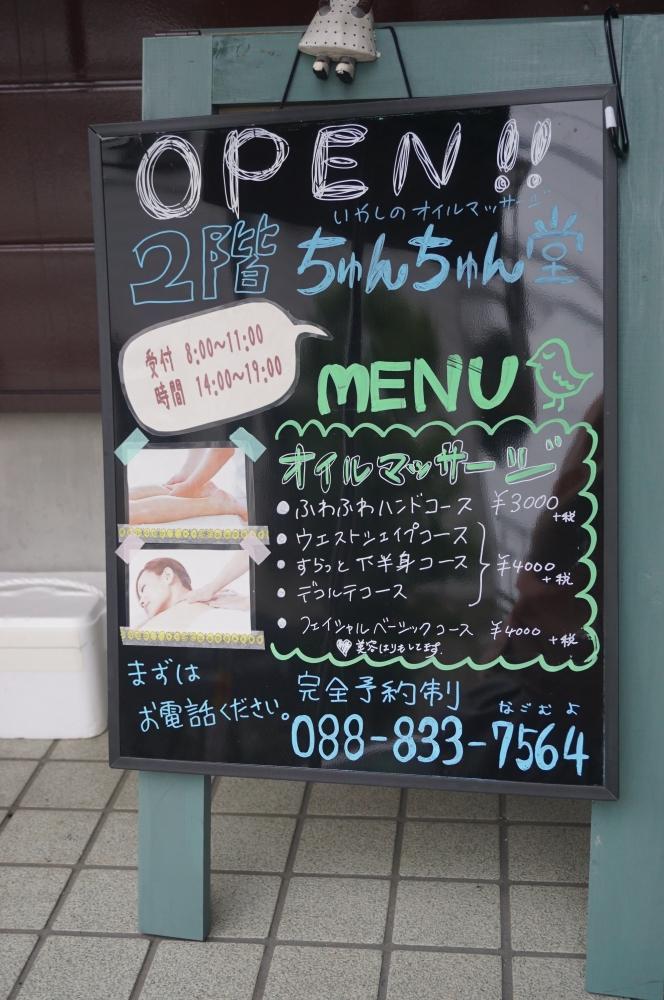 OPEN!!
いやしのオイルマッサージ
2階 ちゅんちゅん堂
受付 8:00〜11:00
時間 14:00〜19:00
MENU
オイルマッサージ
●ふわふわハンドコース ¥3000+税
●ウエストシェイプコース
●すらっと下半身コース ¥4000+税
●デコルテコース
●フェイシャルベーシックコース ¥4000+税
美容はりもしてます。
まずは
お電話ください。
完全予約制
なごむよ
088-833-7564